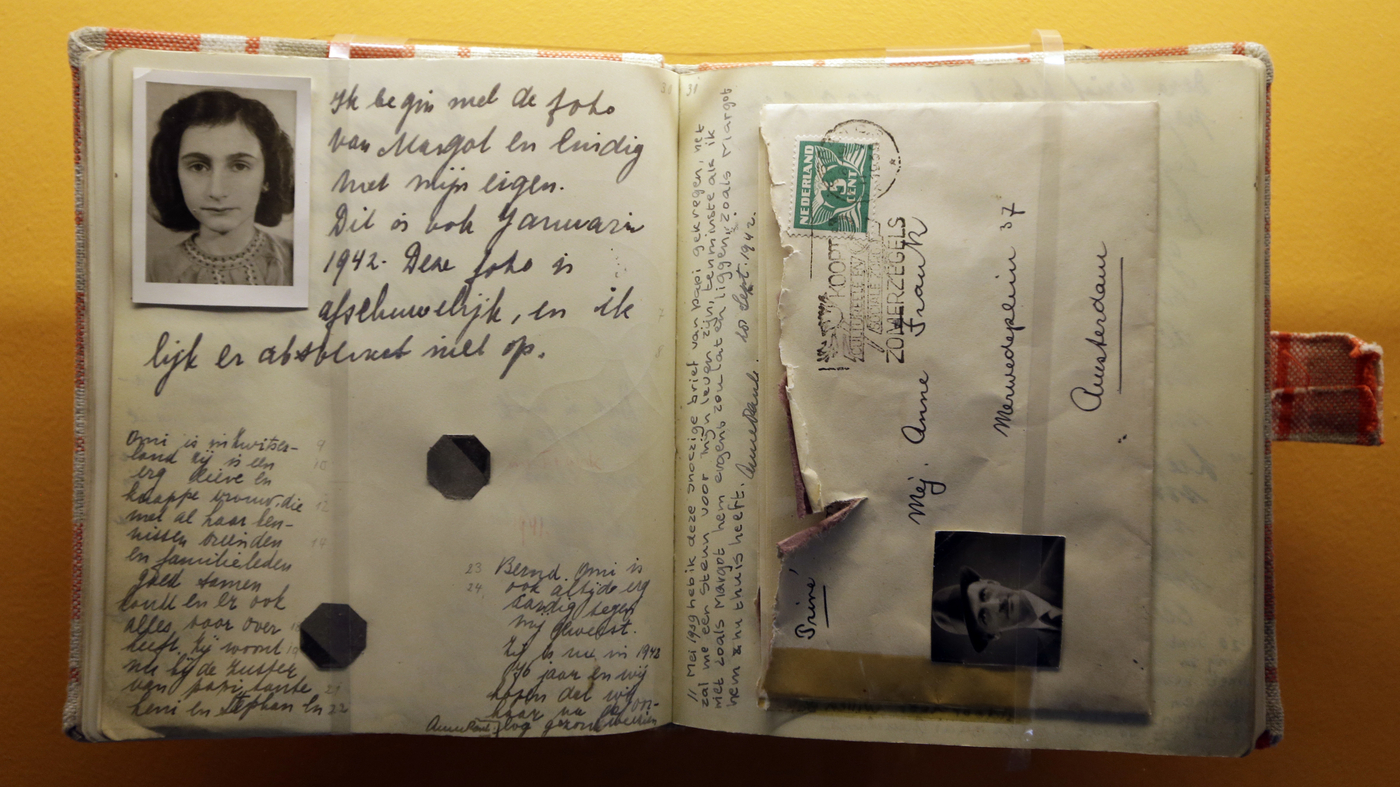 Ik begin met de foto
van Margot en eindig
met mijn eigen.
Dit is ook Januari
1942. Deze foto is
afschuwelijk, en ik
lijk er absoluut niet op.
Omi is in Zwitser-
land zij is een
erg lieve en
knappe vrouw, die
met al haar ken-
nissen vrienden
en familieleden
goed samen
en er ook
alles voor over
heeft. Zij woont
nu bij de zuster
van papi tante
Leni en Stephan en
23 Bernd. Omi is
24 ook altijd erg
aardig tegen
mij geweest.
Zij is nu in 1942
76 jaar en wij
hopen dat wij
haar na de oor-
log gezond
31
11 Mei 1939 heb ik deze snoezige brief van papi gekregen, het
zal me een steun voor mijn leven zijn, tenminste als ik
niet zoals Margot hem ergens zou laten liggen, zoals Margot
hem 2 nu thuis heeft. Anne Frank. Sept. 1942.
NEDERLAND
5
CENT
KOOPT
ZOMERZEGELS
Mej. Anne Frank
Merwedeplein 37
Amsterdam
Privé!